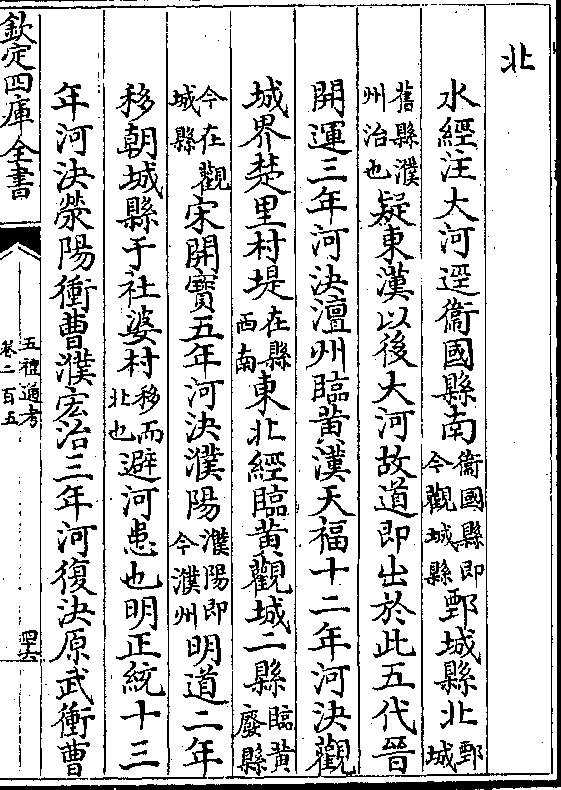 北
水經注大河逕衞國縣南衞國縣即今觀城縣鄄城縣北鄄城
舊縣濮州治也疑東漢以後大河故道即出於此五代晉
開運三年河決澶州臨黄漢天福十二年河決觀
城界楚里村堤在縣西南東北經臨黄觀城二縣臨黄廢縣
今在觀城縣宋開寳五年河決濮陽濮陽即今濮州明道二年
移朝城縣于社婆村移而北也避河患也明正統十三
年河決滎陽衝曹濮宏治三年河復決原武衝曹
欽定四庫全書
五禮通考
卷二百五
四六